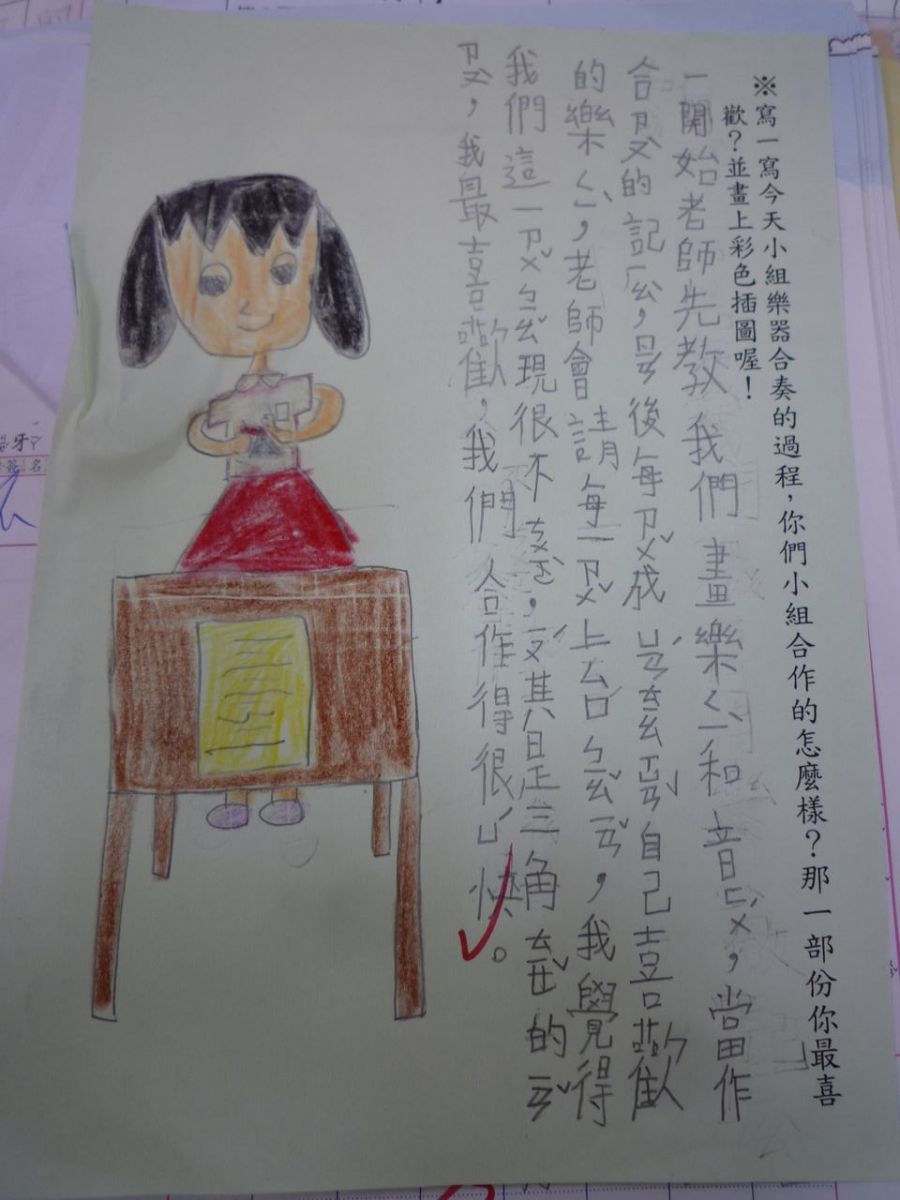 ※寫一寫今天小組樂器合奏的過程，你們小組合作的怎麼樣？那一部份你最喜
歡？並畫上彩色插圖喔！
一開始老師先教我們畫樂ㄑㄧˋ和音ㄈㄨˊ，當作
合ㄗㄡˋ的記ㄏㄠˋ，最後每ㄗㄨˇ成ㄩㄢˊ
自己喜歡
的樂ㄑㄧˋ，老師會請每一ㄗㄨˇ上台ㄅㄧㄠˇㄧㄢˇ，我覺得
我們這一ㄗㄨˇㄅㄧㄠˇ現很不
，
其是三角ㄊㄧㄝˇ的
，我最喜歡，我們合作得很ㄩˊ快。